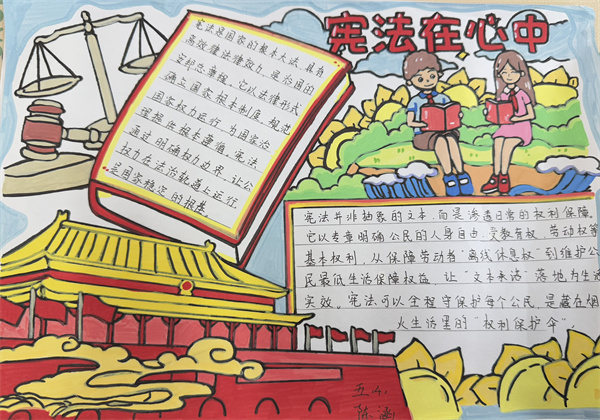 宪法在心中
宪法是国家的根本大法,具有
高效律法律效力,是治国的
安邦总章程。它以法律形式
确立国家根本制度,规范
国家权力运行,为国家治
理提供根本遵循。宪法,
通过明确权力边界,让公
权力在法治轨道上运行,
是国家稳定的根基。
宪法并非抽象的文本,而是渗透日常的权利保障。
它以专章明确公民的人身自由、受教育权、劳动权等
基本权利,从保障劳动者"离线休息权"到维护公
民最低生活保障权益,让"文本表活"落地为生活
实效。宪法可以全程守保护每个公民,是藏在烟
火生活里的"权利保护伞"。
五(4)
陈涵